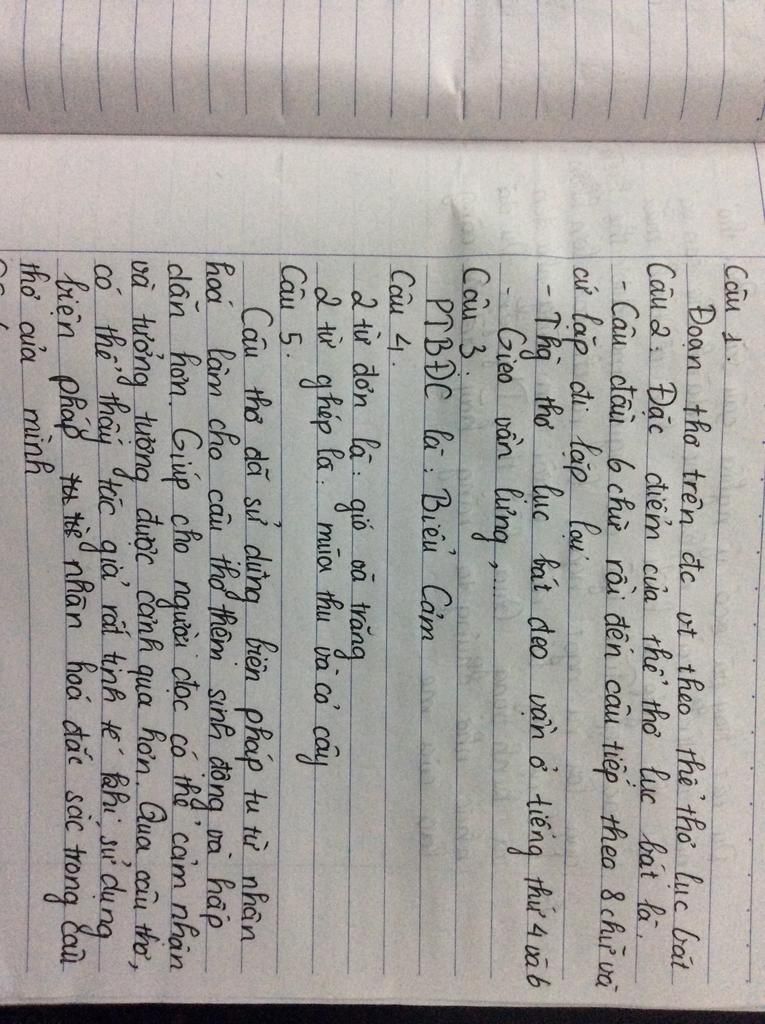 Câu 1.
Đoạn thơ trên đc vt theo thể thơ lục bát
Câu 2: Đặc điểm của thể thơ lục bát là.
- Câu đầu 6 chữ rồi đến câu tiếp theo 8 chữ và
cứ lặp đi lặp lại
- Thg thơ lục bát deo vần ở tiếng thứ 4 và 6
- Gieo vần lưng,....
Câu 3:
PTBĐC là: Biểu Cảm
Câu 4.
2 từ đơn là: gió và trăng
2 từ ghép là: mùa thu và cỏ cây
Câu 5.
Câu thơ đã sử dụng biện pháp tu từ nhân
hoá làm cho câu thơ thêm sinh động và hấp
dẫn hơn. Giúp cho người đọc có thể cảm nhận
và tưởng tượng được cảnh qua hơn. Qua câu thơ,
có thể thấy tác giả rất tinh tế khi sử dụng
biện pháp nhân hoá đắc sắc trong câu
thơ của mình